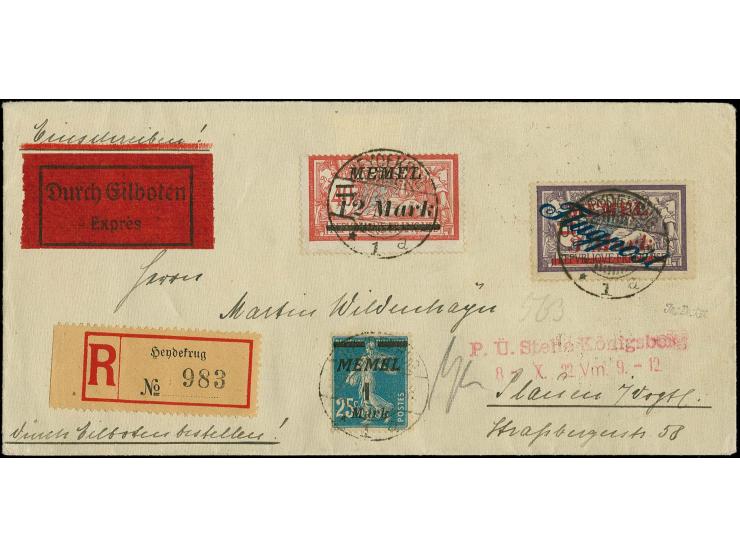 Einschreiben!
Durch Eilboten
Exprès
MEMEL
12 Mark
REPUBLIQUE FRANÇAISE
* 1 a
Flugpost
* 1 a
Herrn
Martin Wildenhayn
R
Heydekrug
№ 983
MEMEL
1
Mark
25c
POSTES
P. Ü. Stelle Königsberg
8 - X. 22 Vm. 9. - 12.
Plauen i/Vogtl.
Durch Eilboten bestellen!
Straßbergerstr. 58